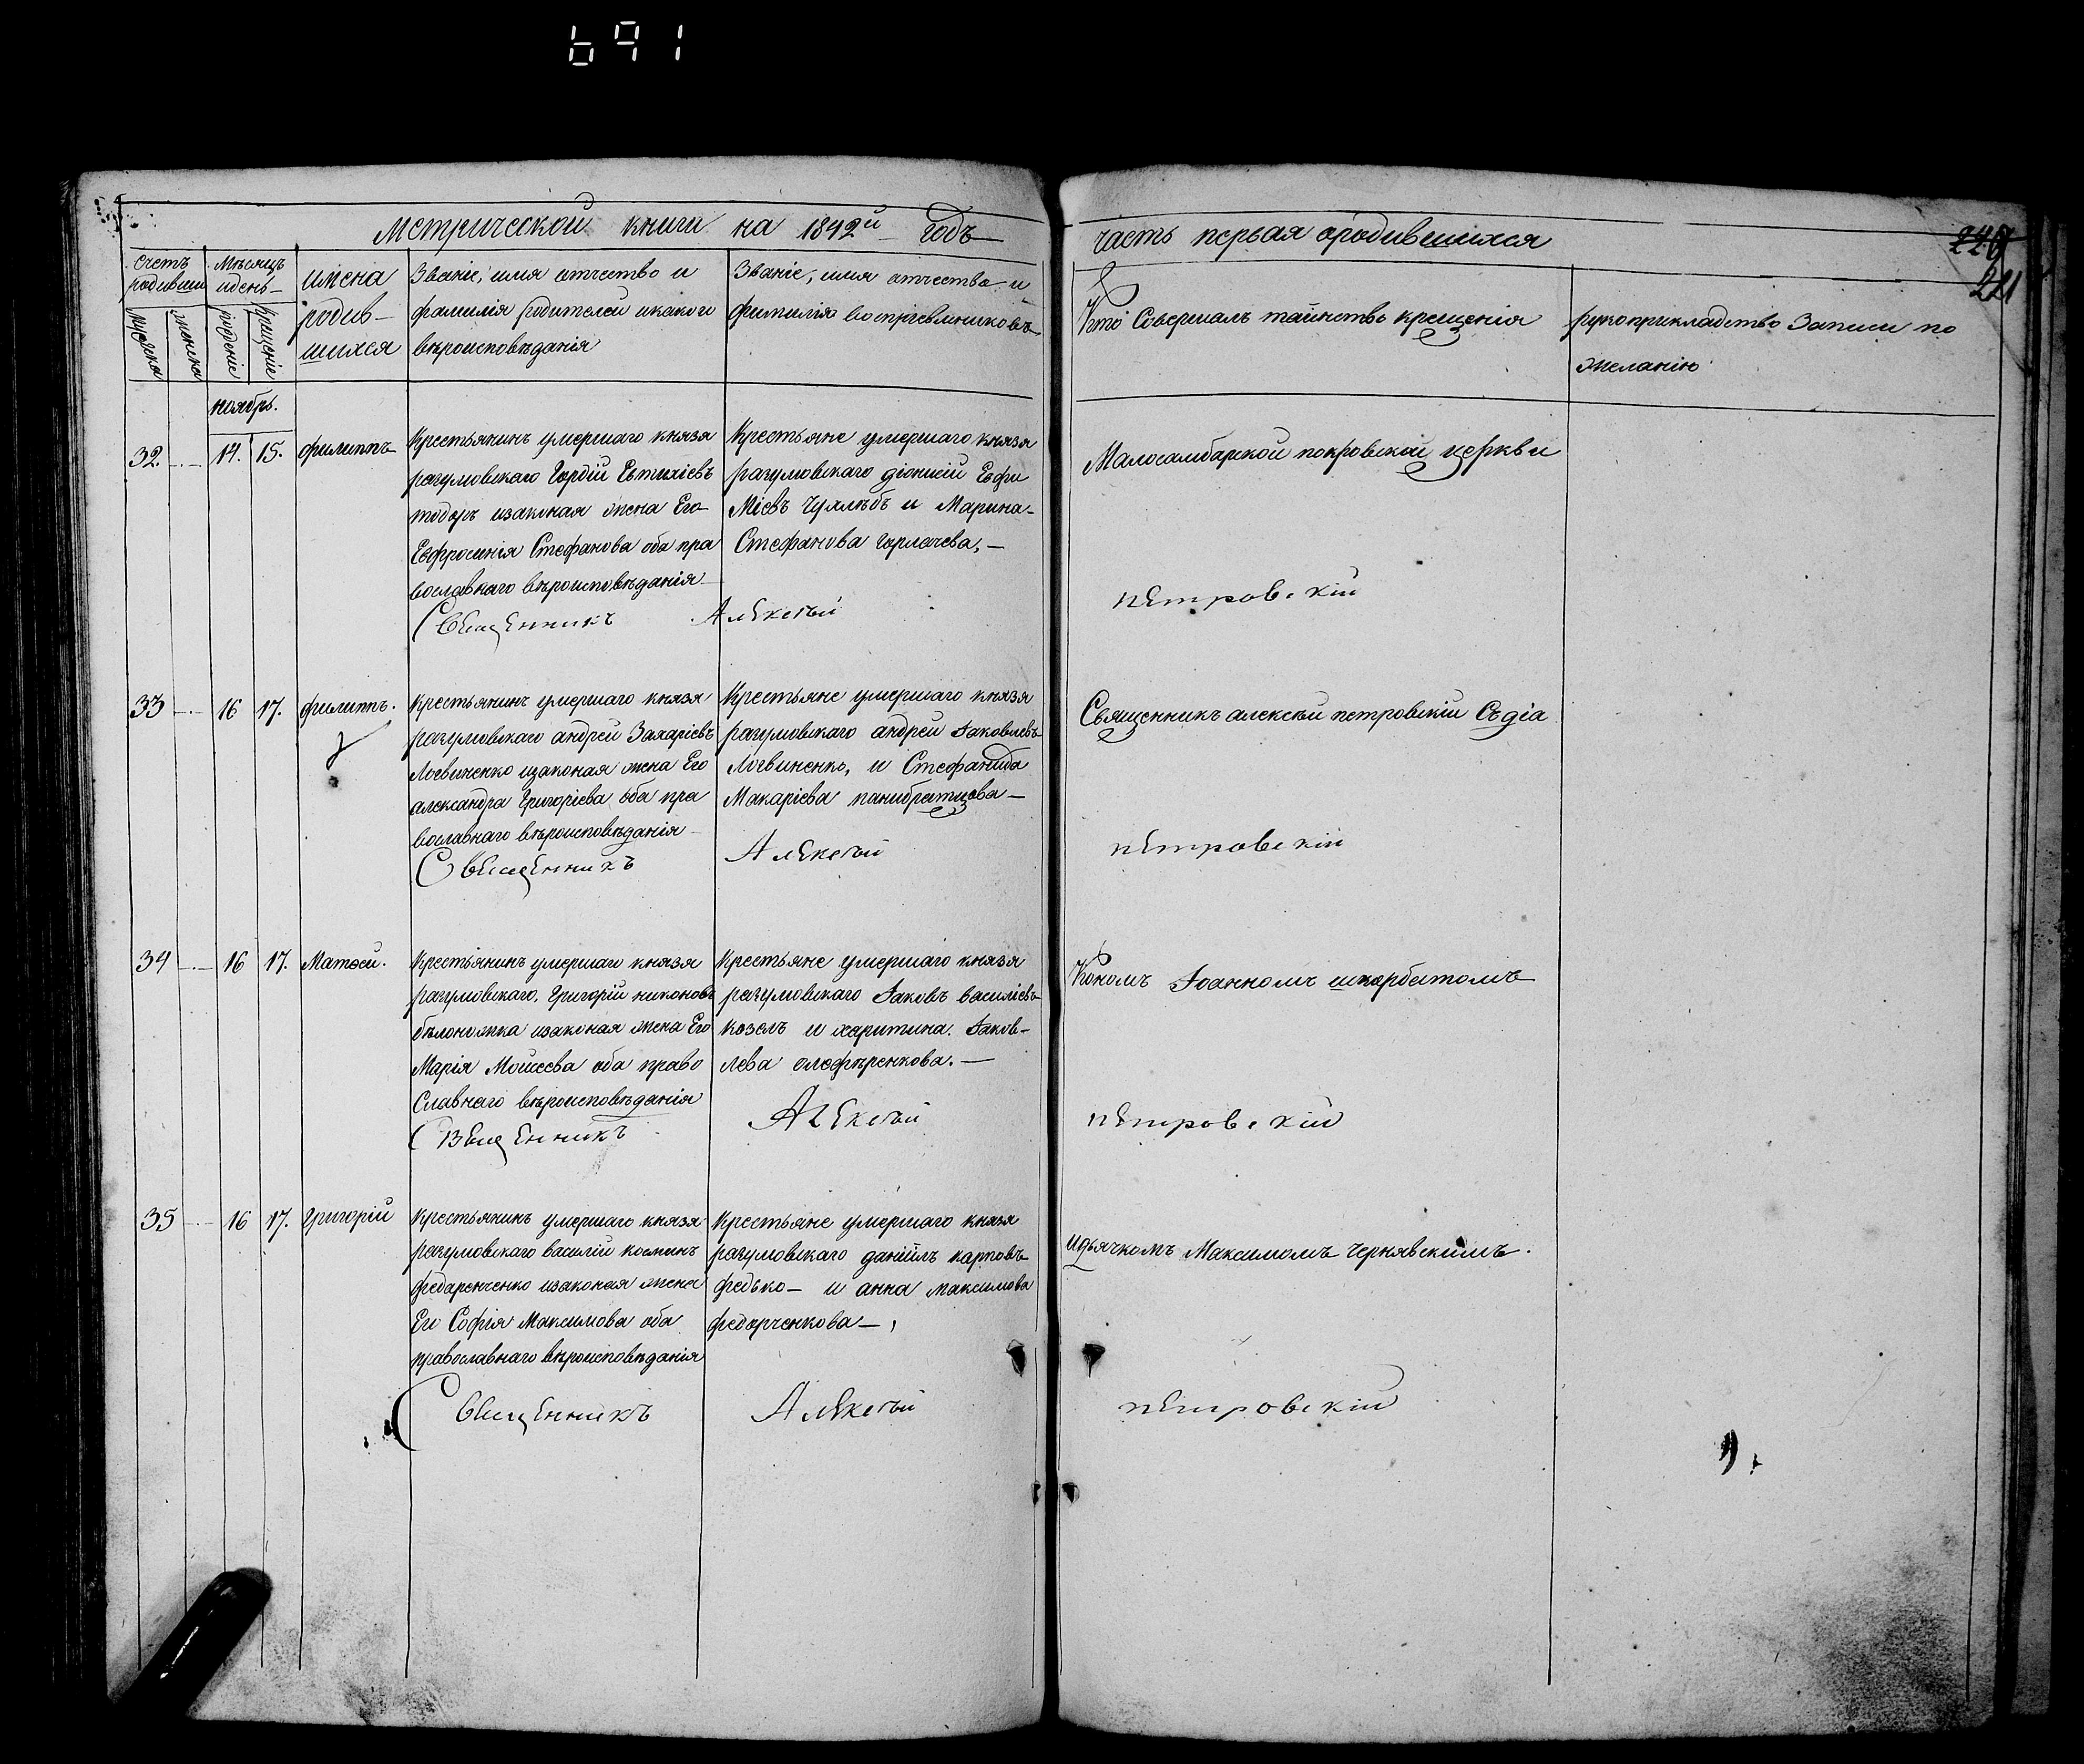 691
Метрической книги на 1842й годъ
часть первая ородившихся
240
241
счетъ родивши
Мѣсяцъ идень
имена родив-
шихся
Званіе, имя отчество и
фамилія родителей икакого
вѣроисповѣданія
Званіе, имя отчество и
фамилія воспріемниковъ
Кто Совершалъ таинство крещенія
рукоприкладство Записи по
желанію
мужеска
женска
рожденіе
крещеніе
ноябрь.
32.
14. 15.
филиппъ
Крестьянинъ умершаго князя
разумовскаго Гордій Евтихіевъ
изаконая жена Его
Евфросинія Стефанова оба пра
вославнаго вѣроисповѣданія
Крестьяне умершаго князя
разумовскаго діонисій Евфи
міевъ и Марина
Стефанова
Малосамбарской покровской церкви
Свещенникъ Алексѣй петровскій
33
16 17.
филиппъ.
Крестьянинъ умершаго князя
разумовскаго андрей Захаріевъ
Логвиненко изаконая жена Его
александра Григоріева оба пра
вославнаго вѣроисповѣданія
Крестьяне умершаго князя
разумовскаго андрей Іаковлевъ
Логвиненко, и Стефанида
Макаріева панибратцова
Священникъ алексѣй петровскій Съдіа
Свещенникъ Алексѣй петровскій
34
16 17.
Матѳей.
Крестьянинъ умершаго князя
разумовскаго, Григорій никоновъ
бѣлоножка изаконая жена Его
Марія Моисеева оба право
славнаго вѣроисповѣданія
Крестьяне умершаго князя
разумовскаго Іаковъ василіевъ
козелъ и харитина Іаков-
лева олефѣренкова.
Кономъ Іоанномъ шкорбатомъ
Свещенникъ Алексѣй петровскій
35
16 17.
Григорій
Крестьянинъ умершаго князя
разумовскаго василій косминъ
федаренченко изаконая жена
Его Софія Максимова оба
православнаго вѣроисповѣданія
Крестьяне умершаго князя
разумовскаго даніилъ карповъ
федько и анна максимова
федорченкова
идьячкомъ Максимомъ Чернявскимъ.
Свещенникъ Алексѣй петровскій